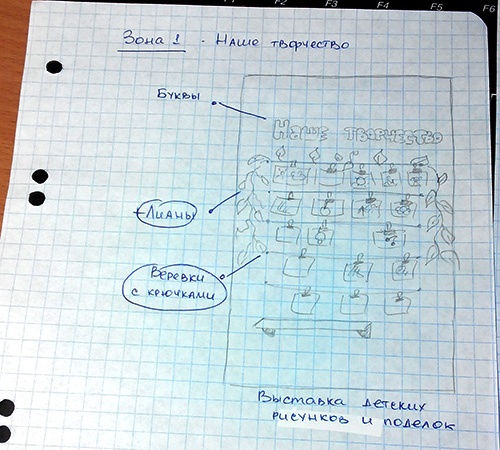 F2 F3 F4 F5 F6
Зона 1 - Наше творчество
Буквы
Наше творчество
Лианы
Веревки
с крючками
Выставка детских
рисунков и поделок